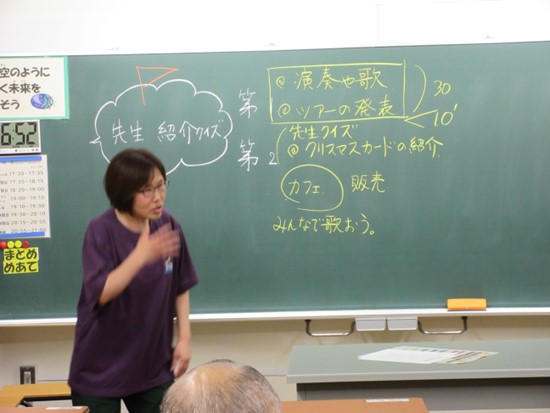 空のように
く未来を
そう
6:52
まとめ
めあて
先生 紹介クイズ
第
@ 演奏や歌
@ ツアーの発表
30
10'
第2
先生クイズ
@ クリスマスカードの紹介
カフェ
販売
みんなで歌おう。